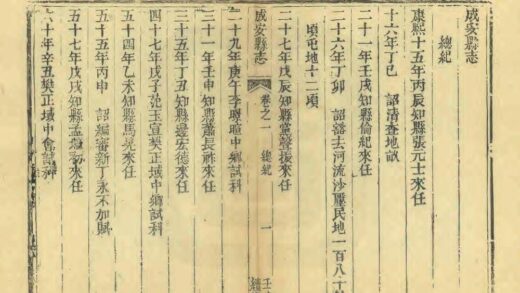 成安縣志
總紀
康熙十五年丙辰知縣張元士來任
十六年丁巳　詔清查地畝
二十一年壬戌知縣倫紀來任
二十六年丁卯　詔豁去河流沙壓民地一百八十
頃屯地十二頃
二十七年戊辰知縣黨聲振來任
成安縣志　卷之一　總紀　一
二十九年庚午李　暄中鄉試科
三十一年壬申知縣蕭長祚來任
三十五年丁丑知縣邊宏德來任
四十七年戊子沈玉宣樊正域中鄉試科
五十四年乙未知縣馬見來任
五十五年丙申　詔編審新丁永不加賦
五十七年戊戌知縣孟　來任
六十年辛丑樊正域中會試科